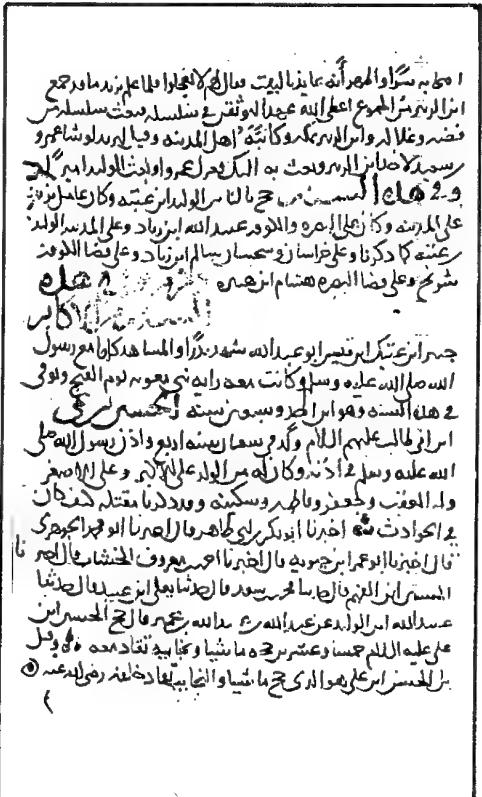 اصحابه سرا والمهرانه عايذ بالبيت وقال لهم لا تعجلوا فلما علم يزيد ما قد جمع
ابن الزبير من الجموع اعطى الله عهدا ليوثقن في سلسله فبعث سلسله من
فضه وابن الزبير بمكه وكاتبه اهل المدينه
ابن الزبير وبعث به اليك فعزل عمر وا وبعث الوليد امير
وفي هذه السنه حج بالناس الوليد ابن عتبه وكان عامل يزيد
على المدينه وكان على البصره والكوفه عبيد الله ابن زياد وعلى المدينه الوليد
بن عتبه كما ذكرنا وعلى خراسان وسجستان سالم ابن زياد وعلى قضا الكوفه
شريح وعلى قضا البصره هشام ابن هبيره ذكر من توفي في هذه
السنه من الاكابر
جبر ابن عتيك ابن قيس ابو عبد الله شهد بدرا والمشاهد كلها مع رسول
الله صلى الله عليه وسلم وكانت معه رايه بني معويه يوم الفتح وتوفي
في هذه السنه وهو ابن احد وسبعين سنه الحسين بن علي
ابن ابي طالب عليهم السلام ولد في شعبان سنه اربع واذن رسول الله صلى
الله عليه وسلم في اذنه وكان له من الولد علي الاكبر وعلي الاصغر
وله العقب وجعفر وفاطمه وسكينه وقد ذكرنا مقتله كيف كان
في الحوادث اخبرنا ابو بكر بن ابي طاهر قال اخبرنا ابو محمد الجوهري
قال اخبرنا ابو عمر ابن حيويه قال اخبرنا احمد بن معروف الخشاب قال اخبرنا
الحسين ابن الفهم قال حدثنا محمد بن سعد قال حدثنا يعلى ابن عبيد قال حدثنا
عبيد الله ابن الوليد عن عبد الله بن عبيد الله بن عمير قال حج الحسين ابن
علي عليه السلام خمسا وعشرين حجه ماشيا ونجايبه تقاد معه وقيل
بل الحسن ابن علي هو الذي حج ماشيا والنجايب تقاد خلفه رضي الله عنه